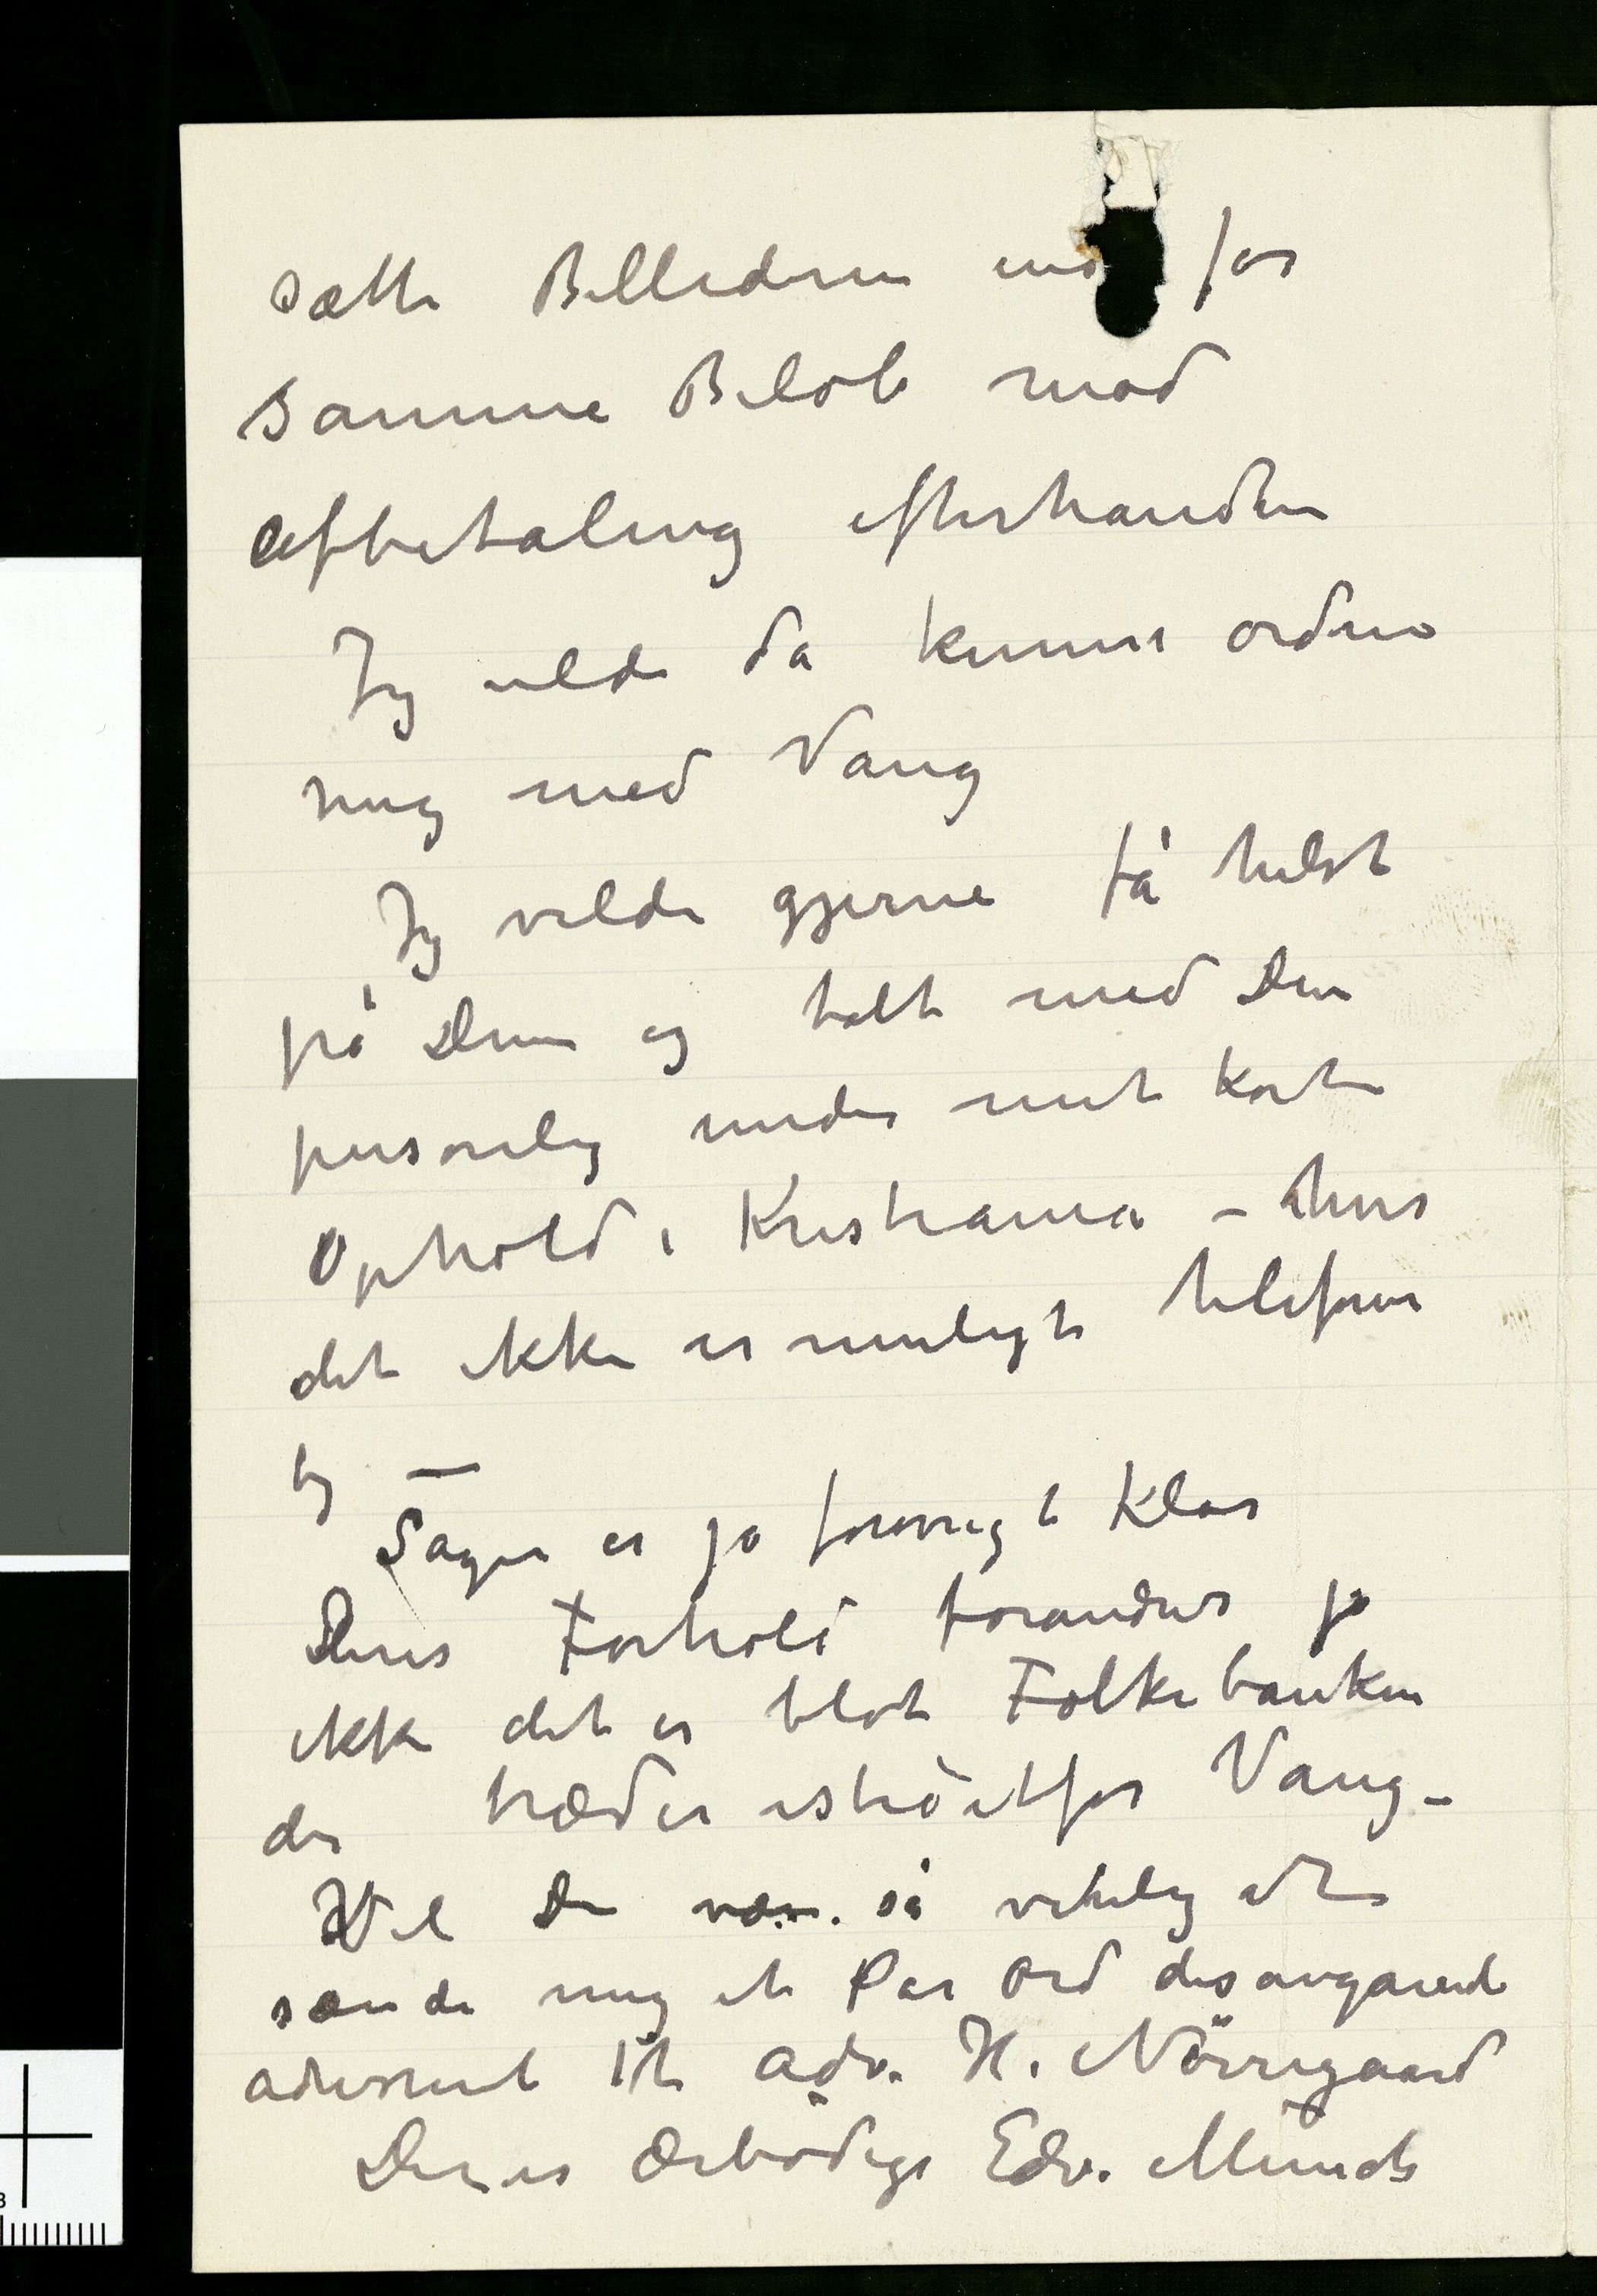 sætte Billederne ind for
samme Beløb mod
Afbetaling efterhanden
Jeg vilde da kunne ordne
mig med Vang
Jeg vilde gjerne få hilst
på Dem og talt med Dem
personlig under mit korte
Ophold i Kristiania – hvis
det ikke er muligt telefoner
jeg —
Sagen er jo forøvrigt klar
Deres Forhold forandres jo
ikke det er blot Folkebanken
der træder istedetfor Vang –
Vil De være så venlig at
sænde mig et Par Ord desangaaende
adresseret til Adv. H. Nörregaard
Deres ærbödige Edv. Munch